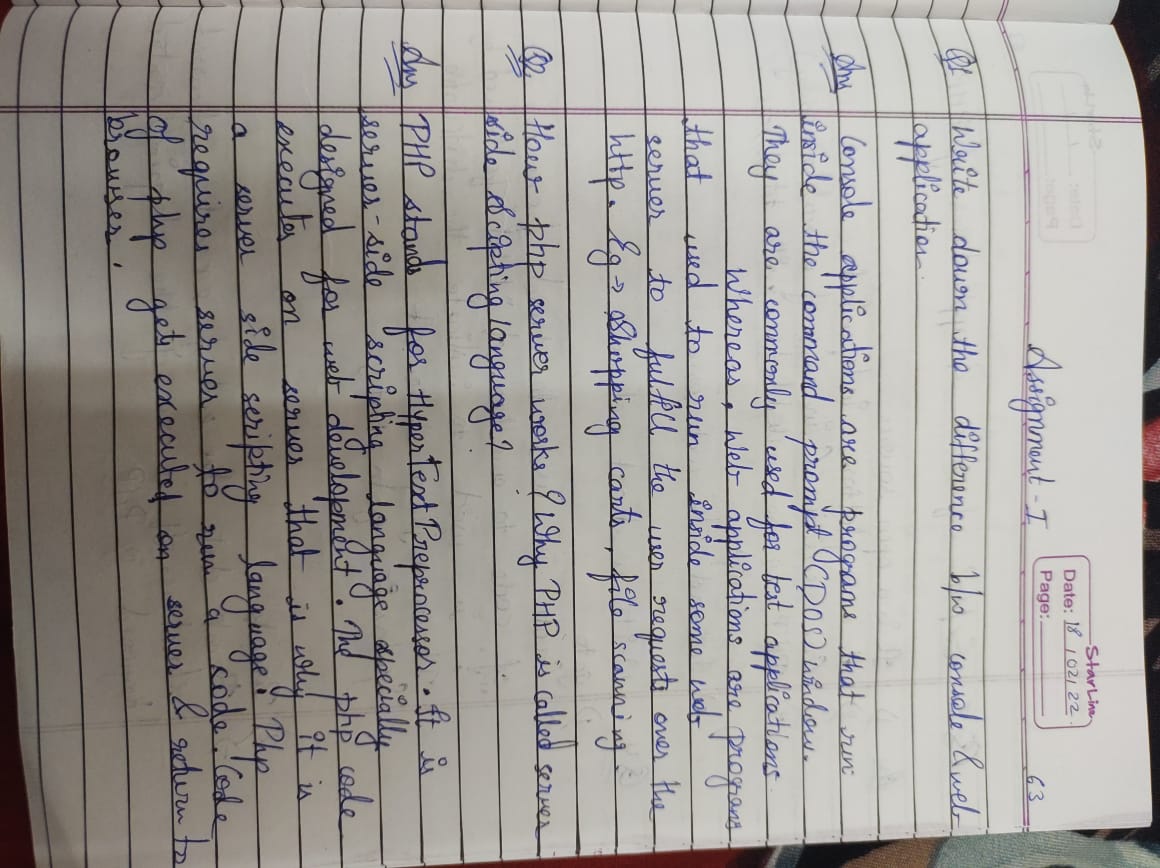 StarLine
Date: 18/02/22
Page:
Assignment - I
63
Q1 Write down the difference b/w console & web
application.
Ans Console applications are programs that run
inside the command prompt (DOS) window.
They are commonly used for test applications
Whereas, Web applications are programs
that used to run inside some web
server to fulfill the user requests over the
http. Eg → Shopping carts, file scanning.
Q2 How php server works? Why PHP is called server
side scripting language?
Ans PHP stands for HyperText Preprocessor. It is
server-side scripting language especially
designed for web development. The php code
executes on server that is why it is
a server side scripting language. Php
requires server to run a code. Code
of php gets executed on server & return to
browser.